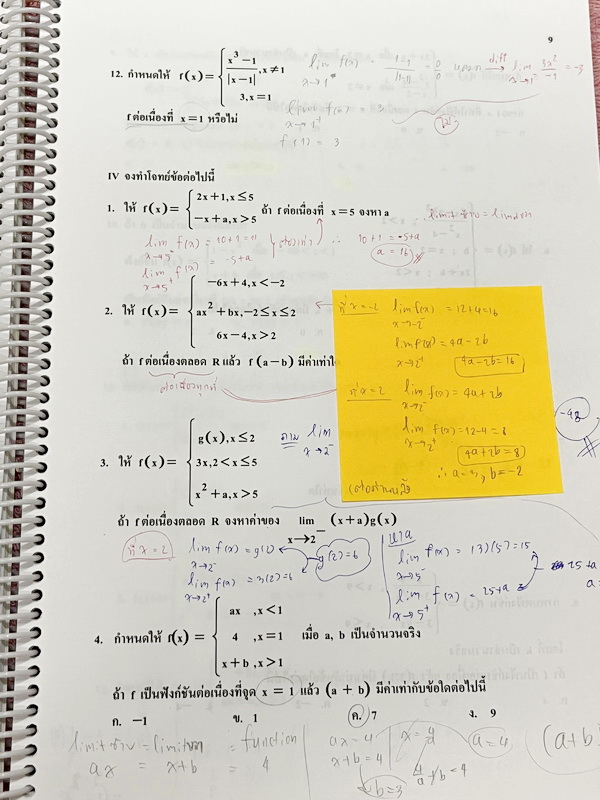 9
12. กำหนดให้ f(x) = { x³ − 1 / |x − 1| , x ≠ 1
3, x = 1
f ต่อเนื่องที่ x = 1 หรือไม่
lim f(x) =
x→1⁻
0/0
diff → lim 3x²/−1 = −3
x→1⁻
x→1⁺
f(1) = 3
IV จงทำโจทย์ข้อต่อไปนี้
1. ให้ f(x) = { 2x + 1, x ≤ 5
−x + a, x > 5
ถ้า f ต่อเนื่องที่ x = 5 จงหา a
lim f(x) = 10+1 = 11
x→5⁻
lim f(x) = −5+a
x→5⁺
∴ 10+1 = −5+a
a = 16
2. ให้ f(x) = { −6x + 4, x < −2
ax² + bx, −2 ≤ x ≤ 2
6x − 4, x > 2
ถ้า f ต่อเนื่องตลอด R แล้ว f(a − b) มีค่าเท่าใด
ต่อเนื่องทุกที่
ที่ x = −2 lim f(x) = 12+4 = 16
x→−2⁻
lim f(x) = 4a−2b
x→−2⁺
4a−2b = 16
ที่ x = 2 lim f(x) = 4a+2b
x→2⁻
lim f(x) = 12−4 = 8
x→2⁺
4a+2b = 8
b = −2
3. ให้ f(x) = { g(x), x ≤ 2
3x, 2 < x ≤ 5
x² + a, x > 5
ถาม lim
x→2⁻
ถ้า f ต่อเนื่องตลอด R จงหาค่าของ lim (x + a)g(x)
x→2⁻
ที่ x = 2 lim f(x) = g(2)
x→2⁻
g(2) = 6
lim f(x) = 3(2) = 6
x→2⁺
หา a
lim f(x) = (3)(5) = 15
x→5⁻
lim f(x) = 25+a
x→5⁺
25+a
4. กำหนดให้ f(x) = { ax , x < 1
4 , x = 1
x + b , x > 1
เมื่อ a, b เป็นจำนวนจริง
ถ้า f เป็นฟังก์ชันต่อเนื่องที่จุด x = 1 แล้ว (a + b) มีค่าเท่ากับข้อใดต่อไปนี้
ก. −1 ข. 1 ค. 7 ง. 9
limit ซ้าย = limit ขวา = function
ax = x+b = 4
ax = 4
x+b = 4
x = 4/a
4/a + b = 4
b = 3
a = 4
(a+b)